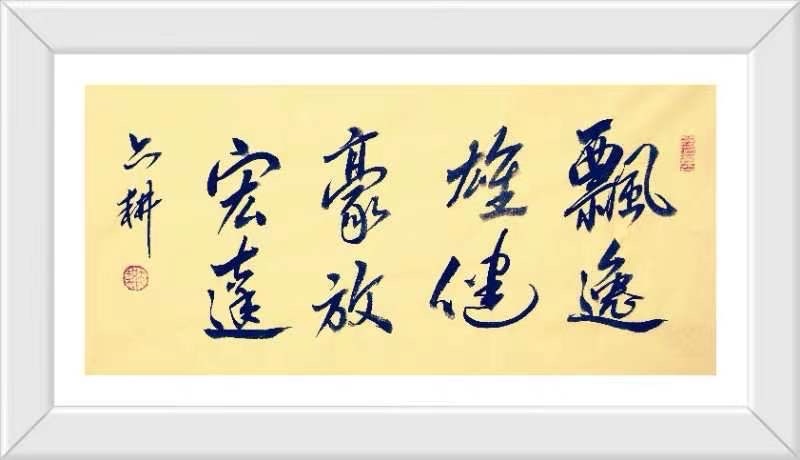 飄逸
雄健
豪放
宏達
六耕